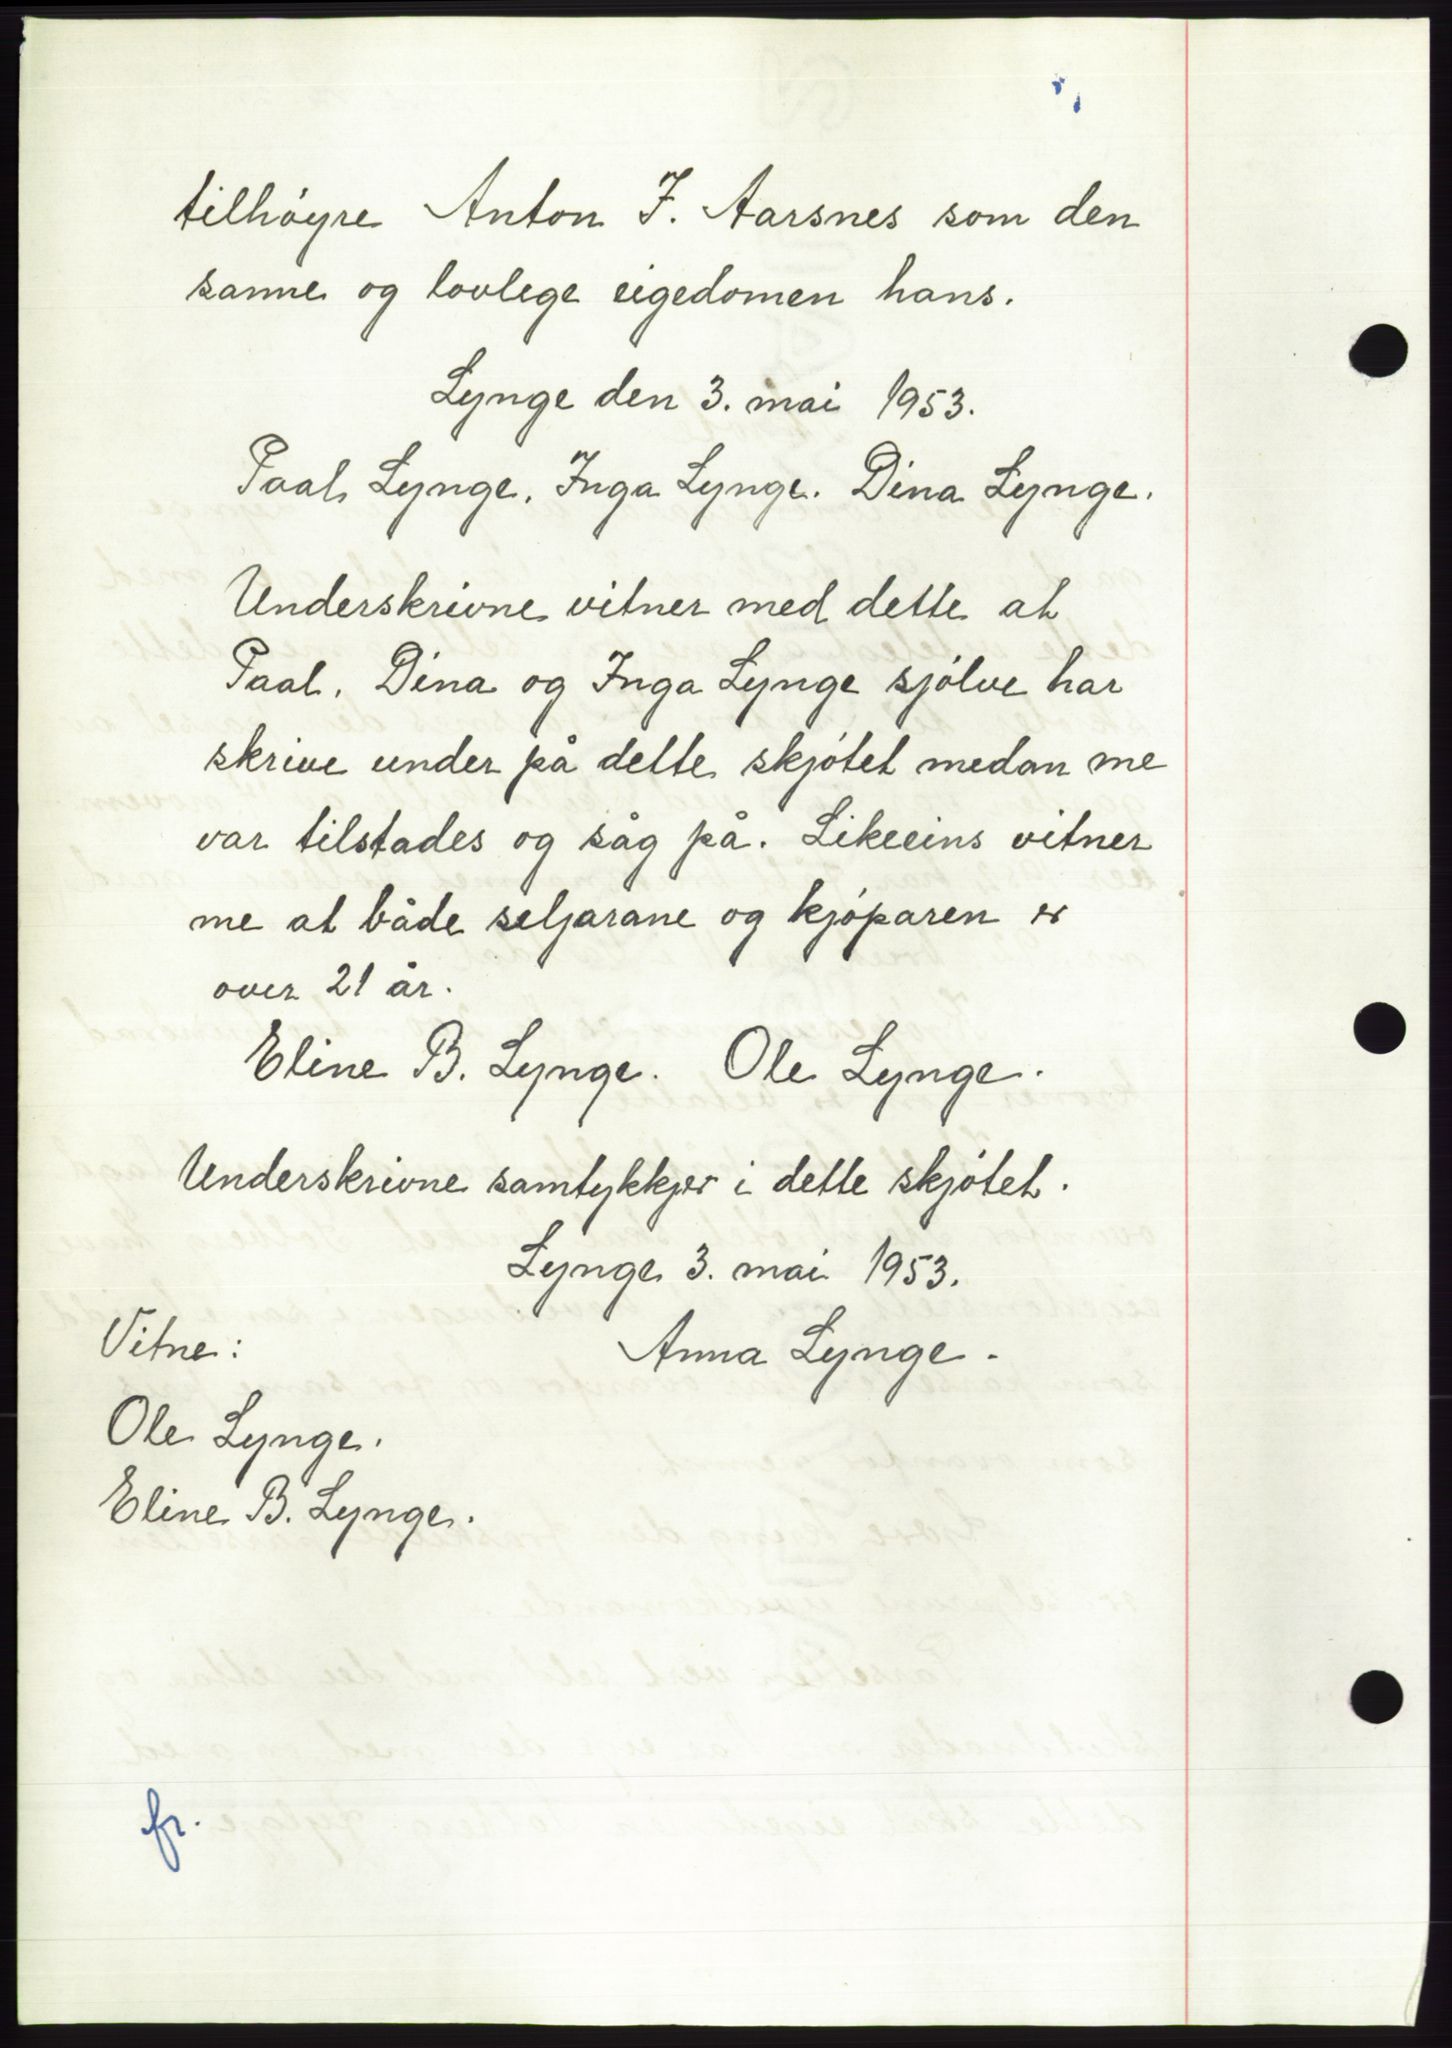 tilhøyre Anton J. Aarsnes som den
sanne og lovlege eigedomen hans.
Lynge den 3. mai 1953.
Paal Lynge. Inga Lynge. Dina Lynge.
Underskrivne vitner med dette at
Paal, Dina og Inga Lynge sjølve har
skrive under på dette skjøtet medan me
var tilstades og såg på. Likeeins vitner
me at både seljarane og kjøparen er
over 21 år.
Eline B. Lynge. Ole Lynge.
Underskrivne samtykkjer i dette skjøtet.
Lynge 3. mai 1953.
Vitne: Anna Lynge.
Ole Lynge.
Eline B. Lynge.
fr.